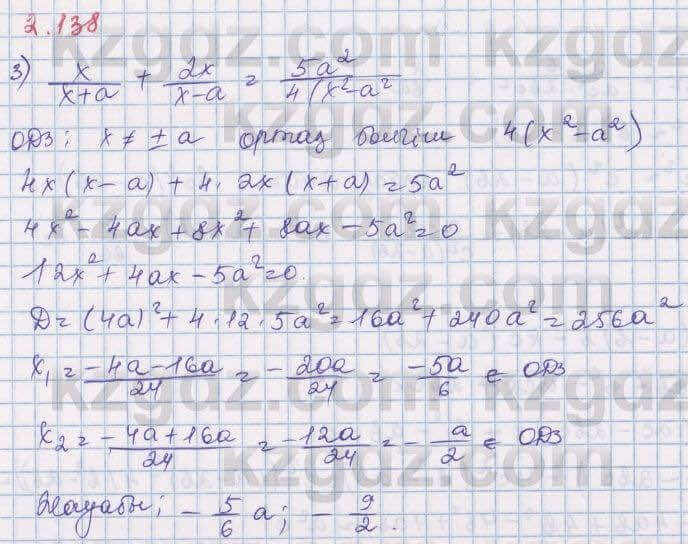 2.138
3) x/(x+a) + 2x/(x-a) = 5a²/4(x²-a²
ОДЗ; x ≠ ± a ортаз бөлгіш 4(x²-a²)
4x(x-a)+4·2x(x+a)=5a²
4x²-4ax+8x²+8ax-5a²=0
12x²+4ax-5a²=0.
D=(4a)²+4·12·5a²=16a²+240a²=256a²
x₁=(-4a-16a)/24=-20a/24=-5a/6 ∈ ОДЗ
x₂=(-4a+16a)/24=-12a/24=-a/2 ∈ ОДЗ
Жауабы; -5/6 a; -9/2.
kzgdz.com